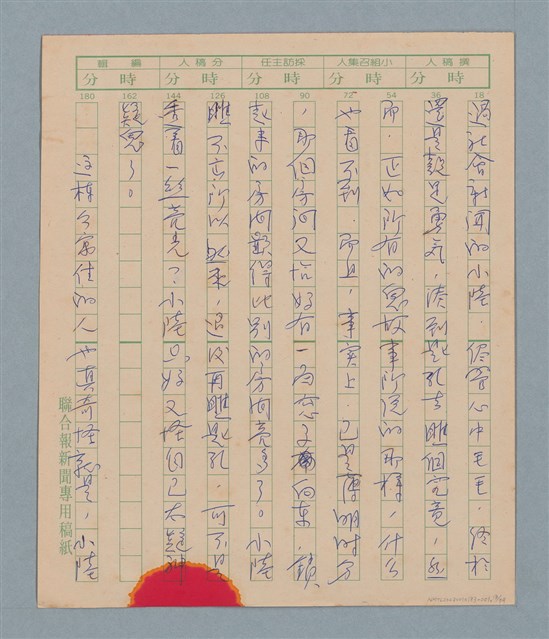 撰稿人 小組召集人 採訪主任 分稿人 編輯
時 分 時 分 時 分 時 分 時 分
18 36 54 72 90 108 126 144 162 180
過社會新聞的小陸,儘管心中毛毛,終於
還是鼓足勇氣,湊到匙孔去瞧個究竟,然
而,正如所有的鬼故事所說的那樣,什么
也看不到,而且,事實上,已是薄明時分
,那個房間又恰好有一面窗子向東,鎖
起來的房間顯得比別的房間亮多了。小陸
瞧不出所以然來,退後再瞧匙孔,可不是
透着一絲亮光?小陸只好又怪自己太疑神
疑鬼了。
這棟公寓住的人也真奇怪就是,小陸
聯合報新聞專用稿紙